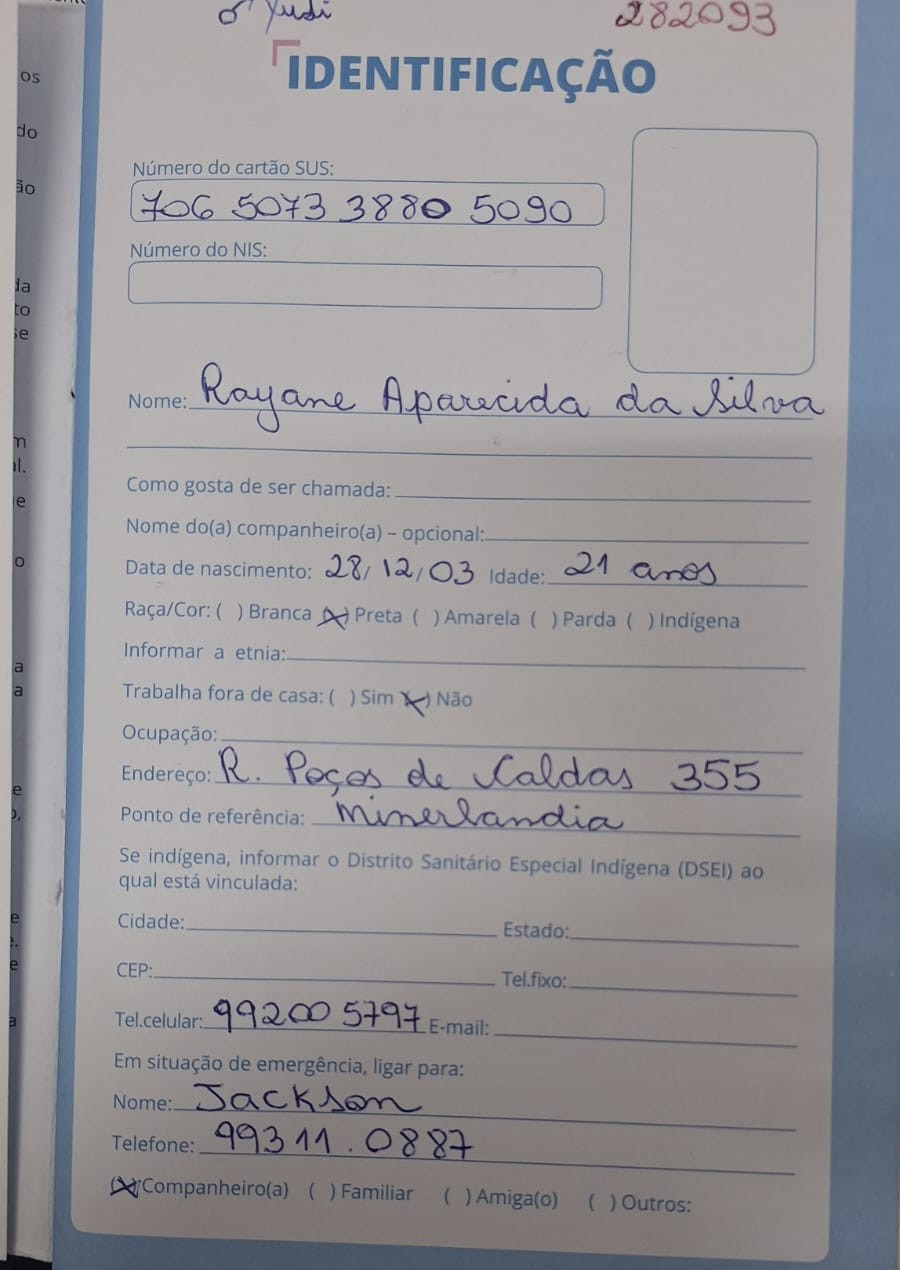 ♂ Yudi
282093
IDENTIFICAÇÃO
Número do cartão SUS:
706 5073 3880 5090
Número do NIS:
Nome: Rayane Aparecida da Silva
Como gosta de ser chamada:
Nome do(a) companheiro(a) – opcional:
Data de nascimento: 28/12/03 Idade: 21 anos
Raça/Cor: ( ) Branca (X) Preta ( ) Amarela ( ) Parda ( ) Indígena
Informar a etnia:
Trabalha fora de casa: ( ) Sim (X) Não
Ocupação:
Endereço: R. Poços de Caldas 355
Ponto de referência: Minerlandia
Se indígena, informar o Distrito Sanitário Especial Indígena (DSEI) ao
qual está vinculada:
Cidade: Estado:
CEP: Tel.fixo:
Tel.celular: 992005797 E-mail:
Em situação de emergência, ligar para:
Nome: Jackson
Telefone: 99311.0887
(X) Companheiro(a) ( ) Familiar ( ) Amiga(o) ( ) Outros:
os
do
ão
da
to
se
m
al.
e
o
a
a
e
o,
e
e.
e
a